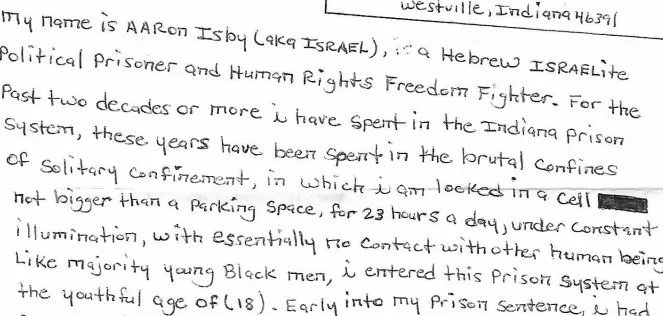 Westville, Indiana 46391
My name is AARon Isby (aka ISRAEL), a Hebrew ISRAELite
Political Prisoner and Human Rights Freedom Fighter. For the
Past two decades or more i have spent in the Indiana prison
System, these years have been spent in the brutal confines
of solitary confinement, in which i am locked in a cell
not bigger than a parking space, for 23 hours a day, under constant
illumination, with essentially no contact with other human being
Like majority young Black men, i entered this prison system at
the youthful age of (18). Early into my prison sentence, i had